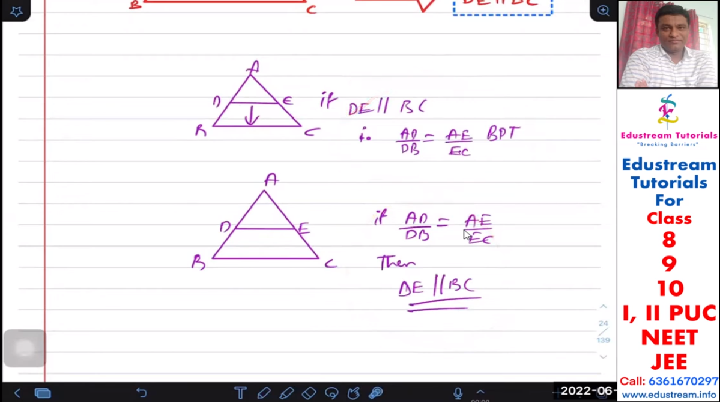 B
C
DE || BC
A
D
E
B
C
if DE || BC
∴ AD/DB = AE/EC BPT
A
D
E
B
C
if AD/DB = AE/EC
Then
DE || BC
24
139
2022-06-
Edustream Tutorials
"Breaking Barriers"
Edustream
Tutorials
For
Class
8
9
10
I, II PUC
NEET
JEE
Call: 6361670297
www.edustream.info